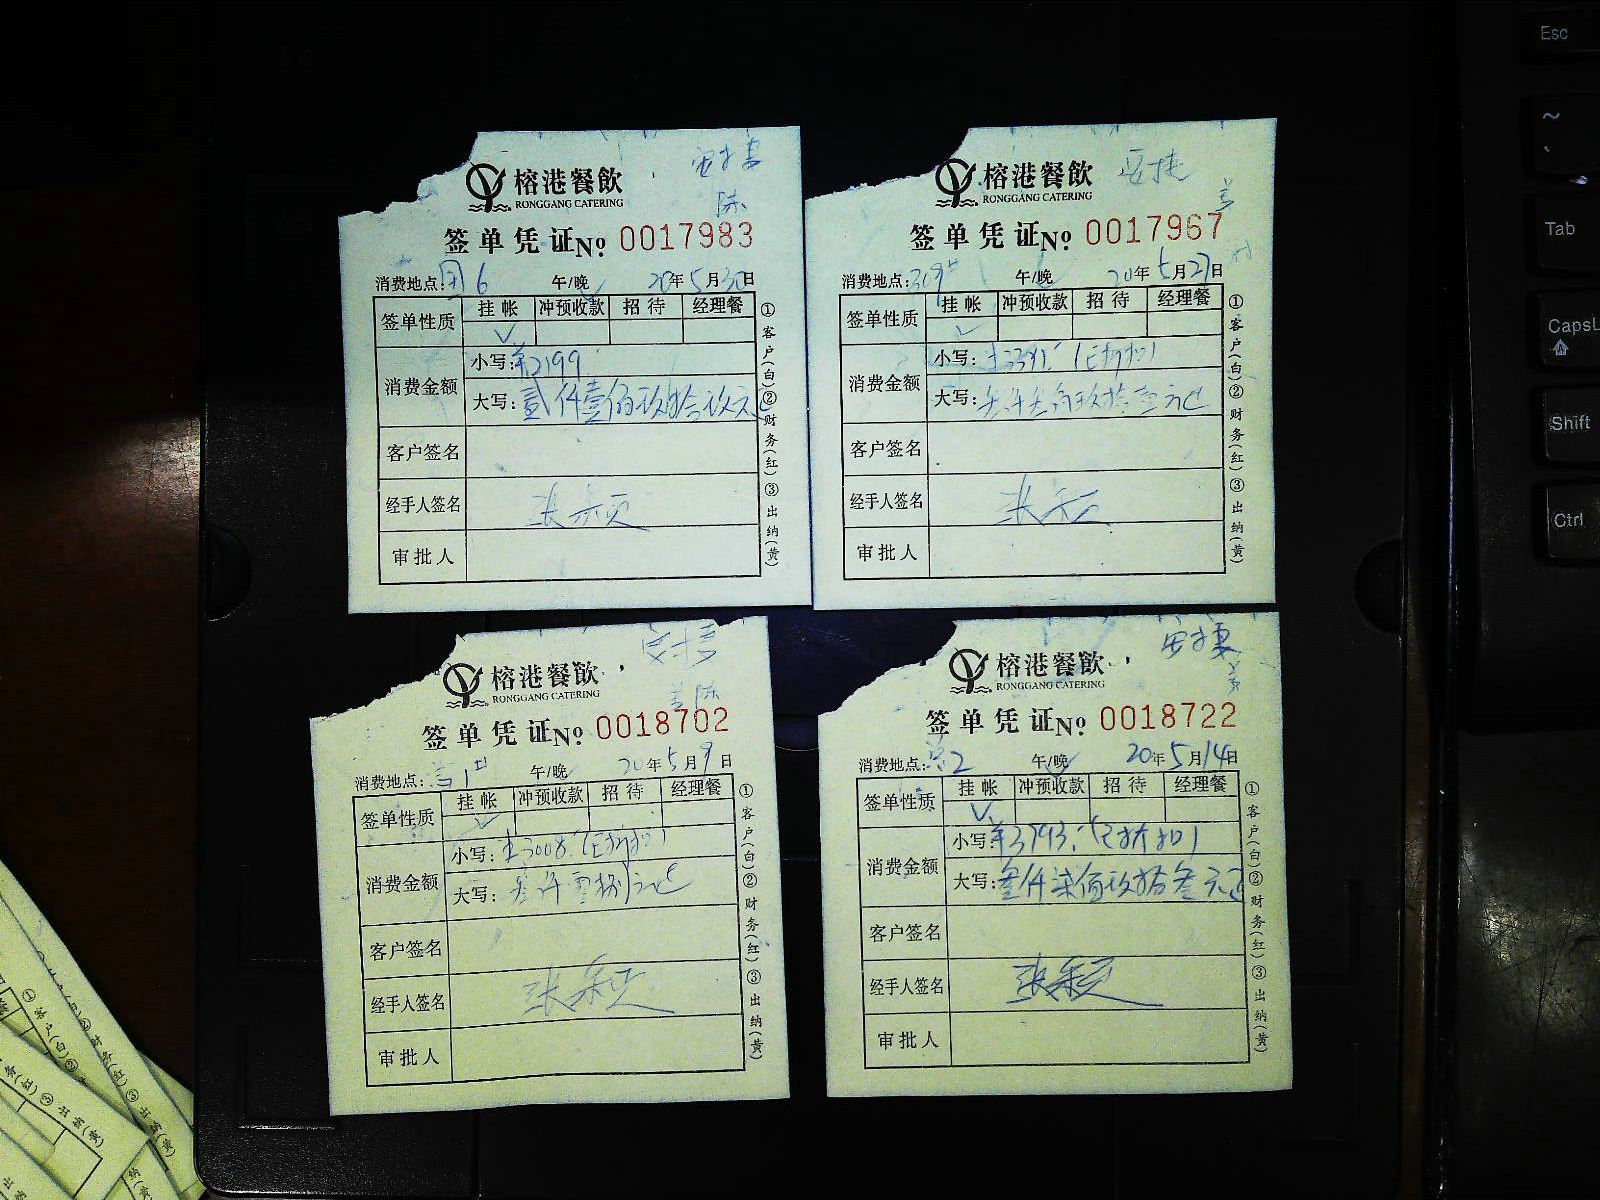 榕港餐飲
RONGGANG CATERING
签单凭证No. 0017983
消费地点: 团6 午/晚 20年5月30日
签单性质 挂帐 冲预收款 招待 经理餐
消费金额
小写: ¥2199
大写: 贰仟壹佰玖拾玖元正
客户签名
经手人签名
审批人
①客户(白)②财务(红)③出纳(黄)
榕港餐飲
安捷
RONGGANG CATERING
签单凭证No. 0017967
消费地点: 309 午/晚 20年5月27日
签单性质 挂帐 冲预收款 招待 经理餐
消费金额
小写:
大写:
客户签名
经手人签名
审批人
①客户(白)②财务(红)③出纳(黄)
榕港餐飲
RONGGANG CATERING
签单凭证No. 0018702
消费地点: 午/晚 20年5月9日
签单性质 挂帐 冲预收款 招待 经理餐
消费金额
小写: ¥3008.(已折扣)
大写: 叁仟零捌元正
客户签名
经手人签名
审批人
①客户(白)②财务(红)③出纳(黄)
安捷
榕港餐飲
RONGGANG CATERING
签单凭证No. 0018722
消费地点: 午/晚 20年5月14日
签单性质 挂帐 冲预收款 招待 经理餐
消费金额
小写: ¥3793.(已折扣)
大写: 叁仟柒佰玖拾叁元正
客户签名
经手人签名
审批人
①客户(白)②财务(红)③出纳(黄)
Esc
~
Tab
CapsL
Shift
Ctrl